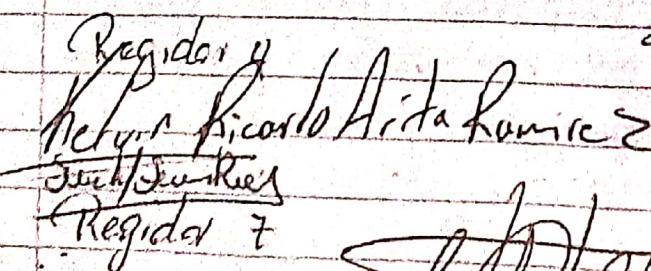 Regidor 4
Kelvin Ricardo Arita Ramirez
Regidor 7